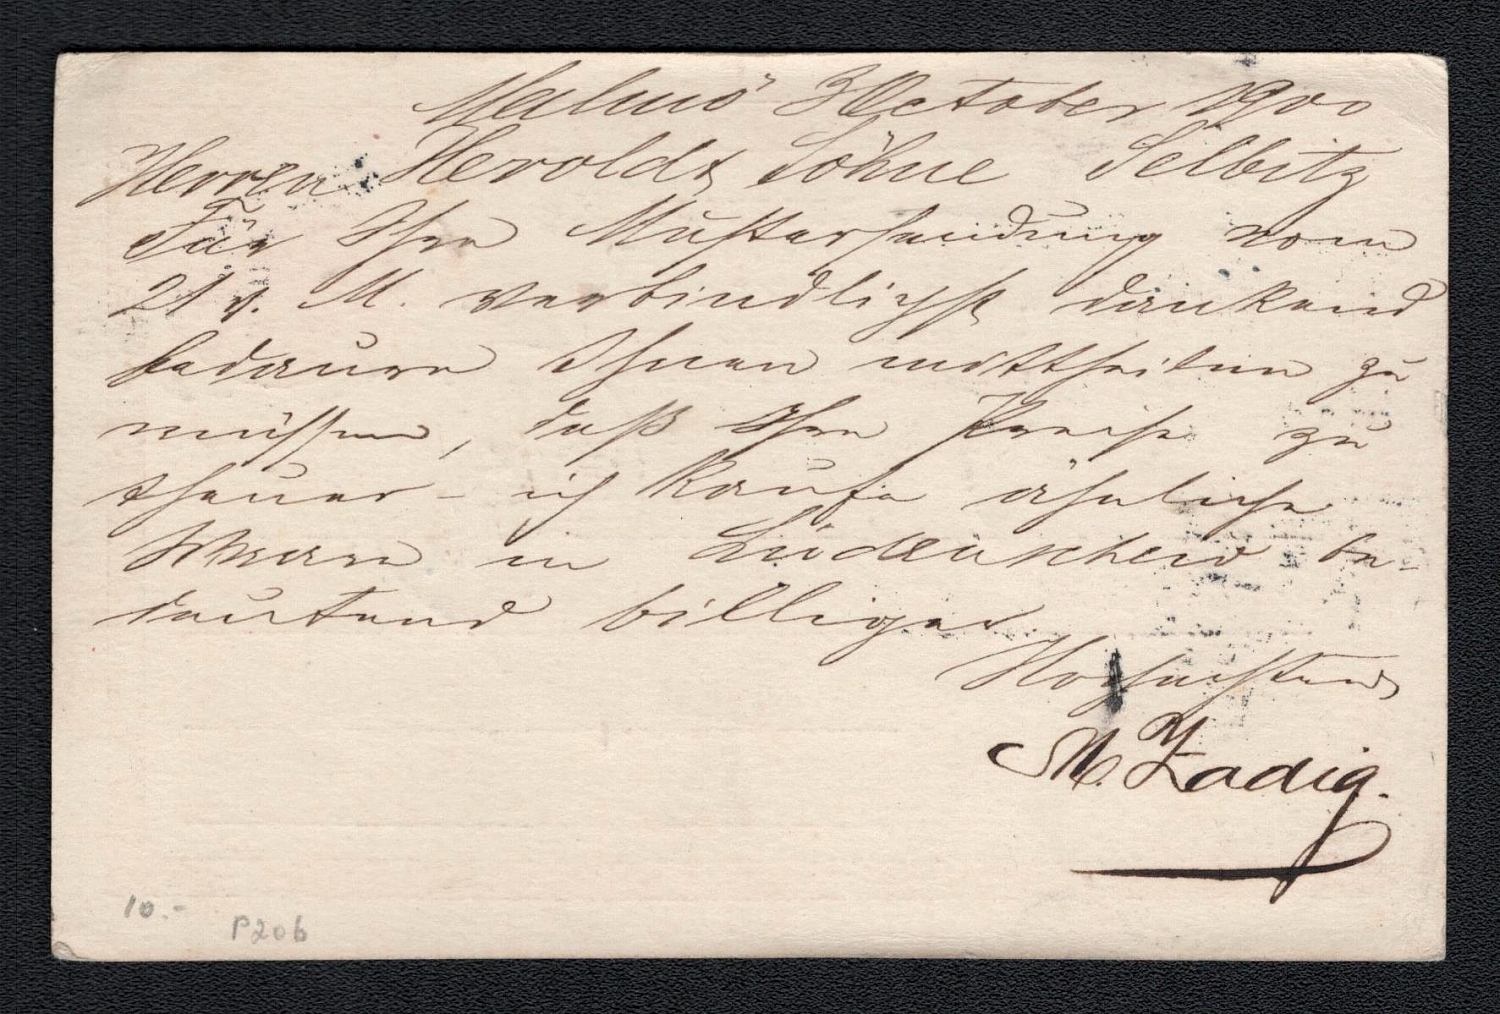 Malmö 3 October 1900
Herren Herolds Söhne Selbitz
Für Ihre Mustersendung vom
21 v. M. verbindlichst dankend
bedaure Ihnen mittheilen zu
müssen, daß Ihre Preise zu
theuer – ich kaufe ähnliche
Waare in Lüdenscheid be-
deutend billiger
Hochachtend
M. Zadig.
10.-
P20b